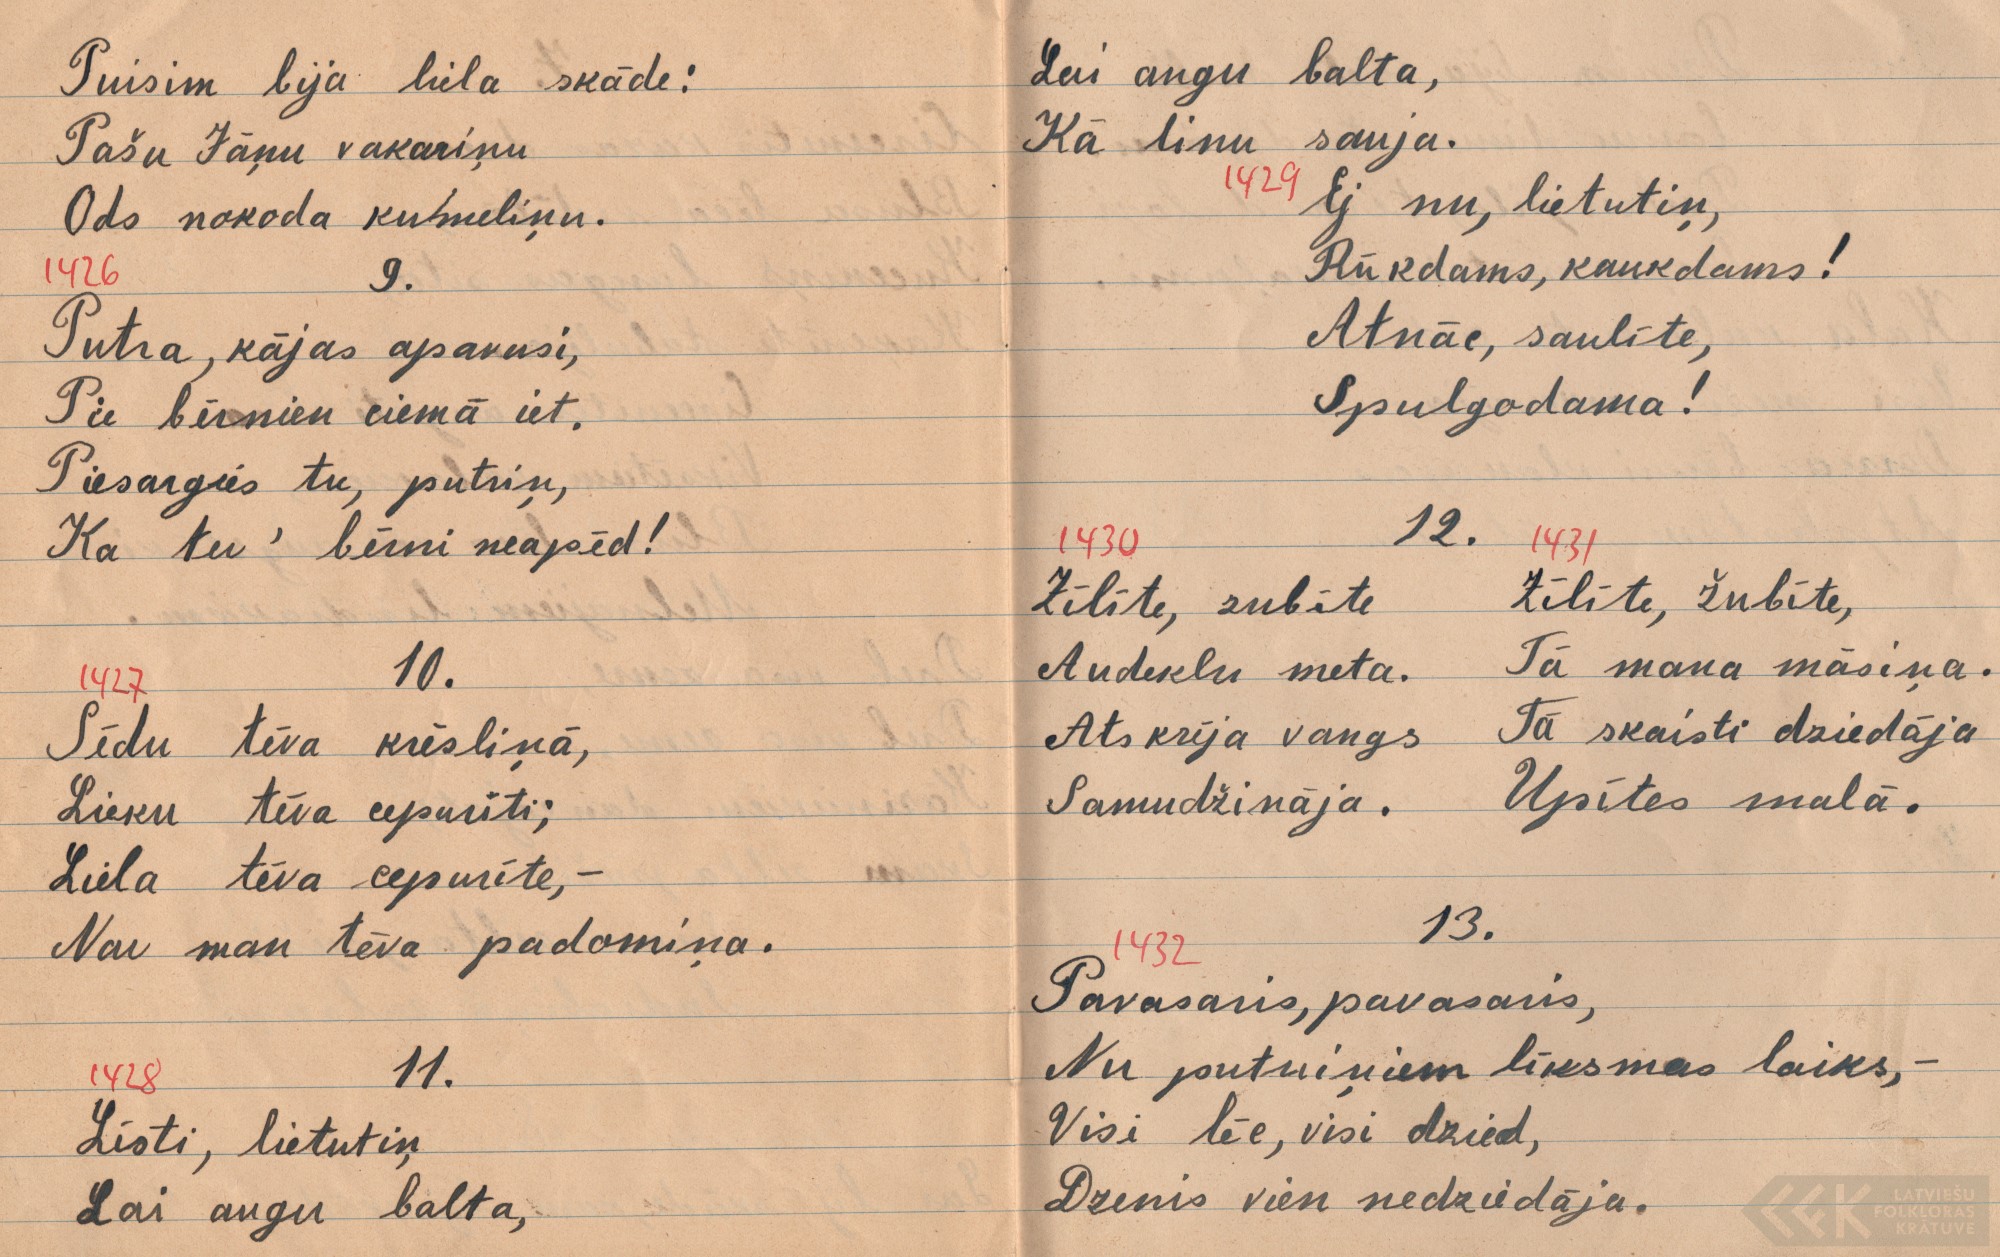 Puisim bija liela skāde:
Pašu Jāņu vakariņu
Ods nokoda kumeliņu.
1426 9.
Putra, kājas apavusi,
Pie bērnien ciemā iet.
Piesargies tu, putriņ,
Ka tev' bērni neapēd!
1427 10.
Sēdu tēva krēsliņā,
Lieku tēva cepurīti;
Liela tēva cepurīte,-
Nav man tēva padomiņa.
1428 11.
Līsti, lietutiņ,
Lai augu balta,
Lai augu balta,
Kā linu sauja.
1429 Ej nu, lietutiņ,
Rūkdams, kaukdams!
Atnāc, saulīte,
Spulgodama!
12.
1430
Zīlīte, zubīte
Audeklu meta.
Atskrēja vangs
Samudžināja.
1431
Zīlīte, žubīte,
Tā mana māsiņa.
Tā skaisti dziedāja
Upītes malā.
1432 13.
Pavasaris, pavasaris,
Nu putniņiem līksmas laiks,-
Visi lēc, visi dzied,
Dzenis vien nedziedāja.
LATVIEŠU
FOLKLORAS
KRĀTUVE